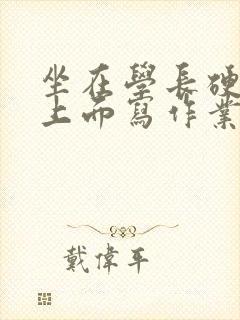 坐在學長硬
上面寫作業
戴偉平